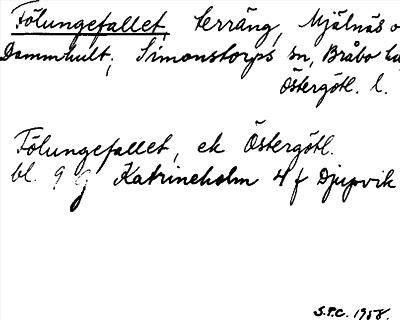 Fölungefallet, terräng, Mjälnäs o
Dammhult, Simonstorps sn, Bråbo
Östergötl. l.
Fölungefallet, ek Östergötl.
bl. 9 g Katrineholm 4 f Djupvik
S.P.C. 1958.